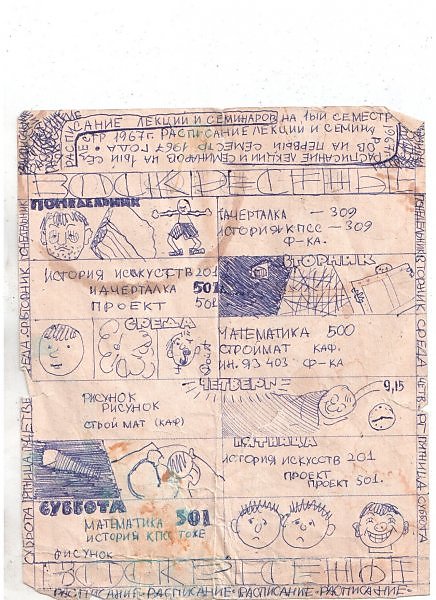 РАСПИСАНИЕ ЛЕКЦИИ И СЕМИНАРОВ НА 1ЫЙ СЕМЕСТР 1967Г. РАСПИСАНИЕ ЛЕКЦИИ И СЕМИНАРОВ НА ПЕРВЫЙ СЕМЕСТР 1967 ГОДА.
РАСПИСАНИЕ ЛЕКЦИИ И СЕМИНАРОВ НА 1ЫЙ СЕМ
ВОСКРЕСЕНЬЕ
ПОНЕДЕЛЬНИК
НАЧЕРТАЛКА — 309
ИСТОРИЯ КПСС — 309
Ф-КА.
ВТОРНИК
ИСТОРИЯ ИСКУССТВ 201
НАЧЕРТАЛКА 501
ПРОЕКТ 501
СРЕДА
МАТЕМАТИКА 500
СТРОЙМАТ КАФ.
ИН. ЯЗ 403 Ф-КА
ЧЕТВЕРГ
9,15
РИСУНОК
РИСУНОК
СТРОЙ МАТ (КАФ)
ПЯТНИЦА
ИСТОРИЯ ИСКУССТВ 201
ПРОЕКТ
ПРОЕКТ 501.
СУББОТА
МАТЕМАТИКА 501
ИСТОРИЯ КПСС ТОЖЕ
РИСУНОК
ВОСКРЕСЕНЬЕ
РАСПИСАНИЕ РАСПИСАНИЕ РАСПИСАНИЕ РАСПИСАНИЕ
ПОНЕДЕЛЬНИК ВТОРНИК СРЕДА ЧЕТВЕРГ ПЯТНИЦА СУББОТА